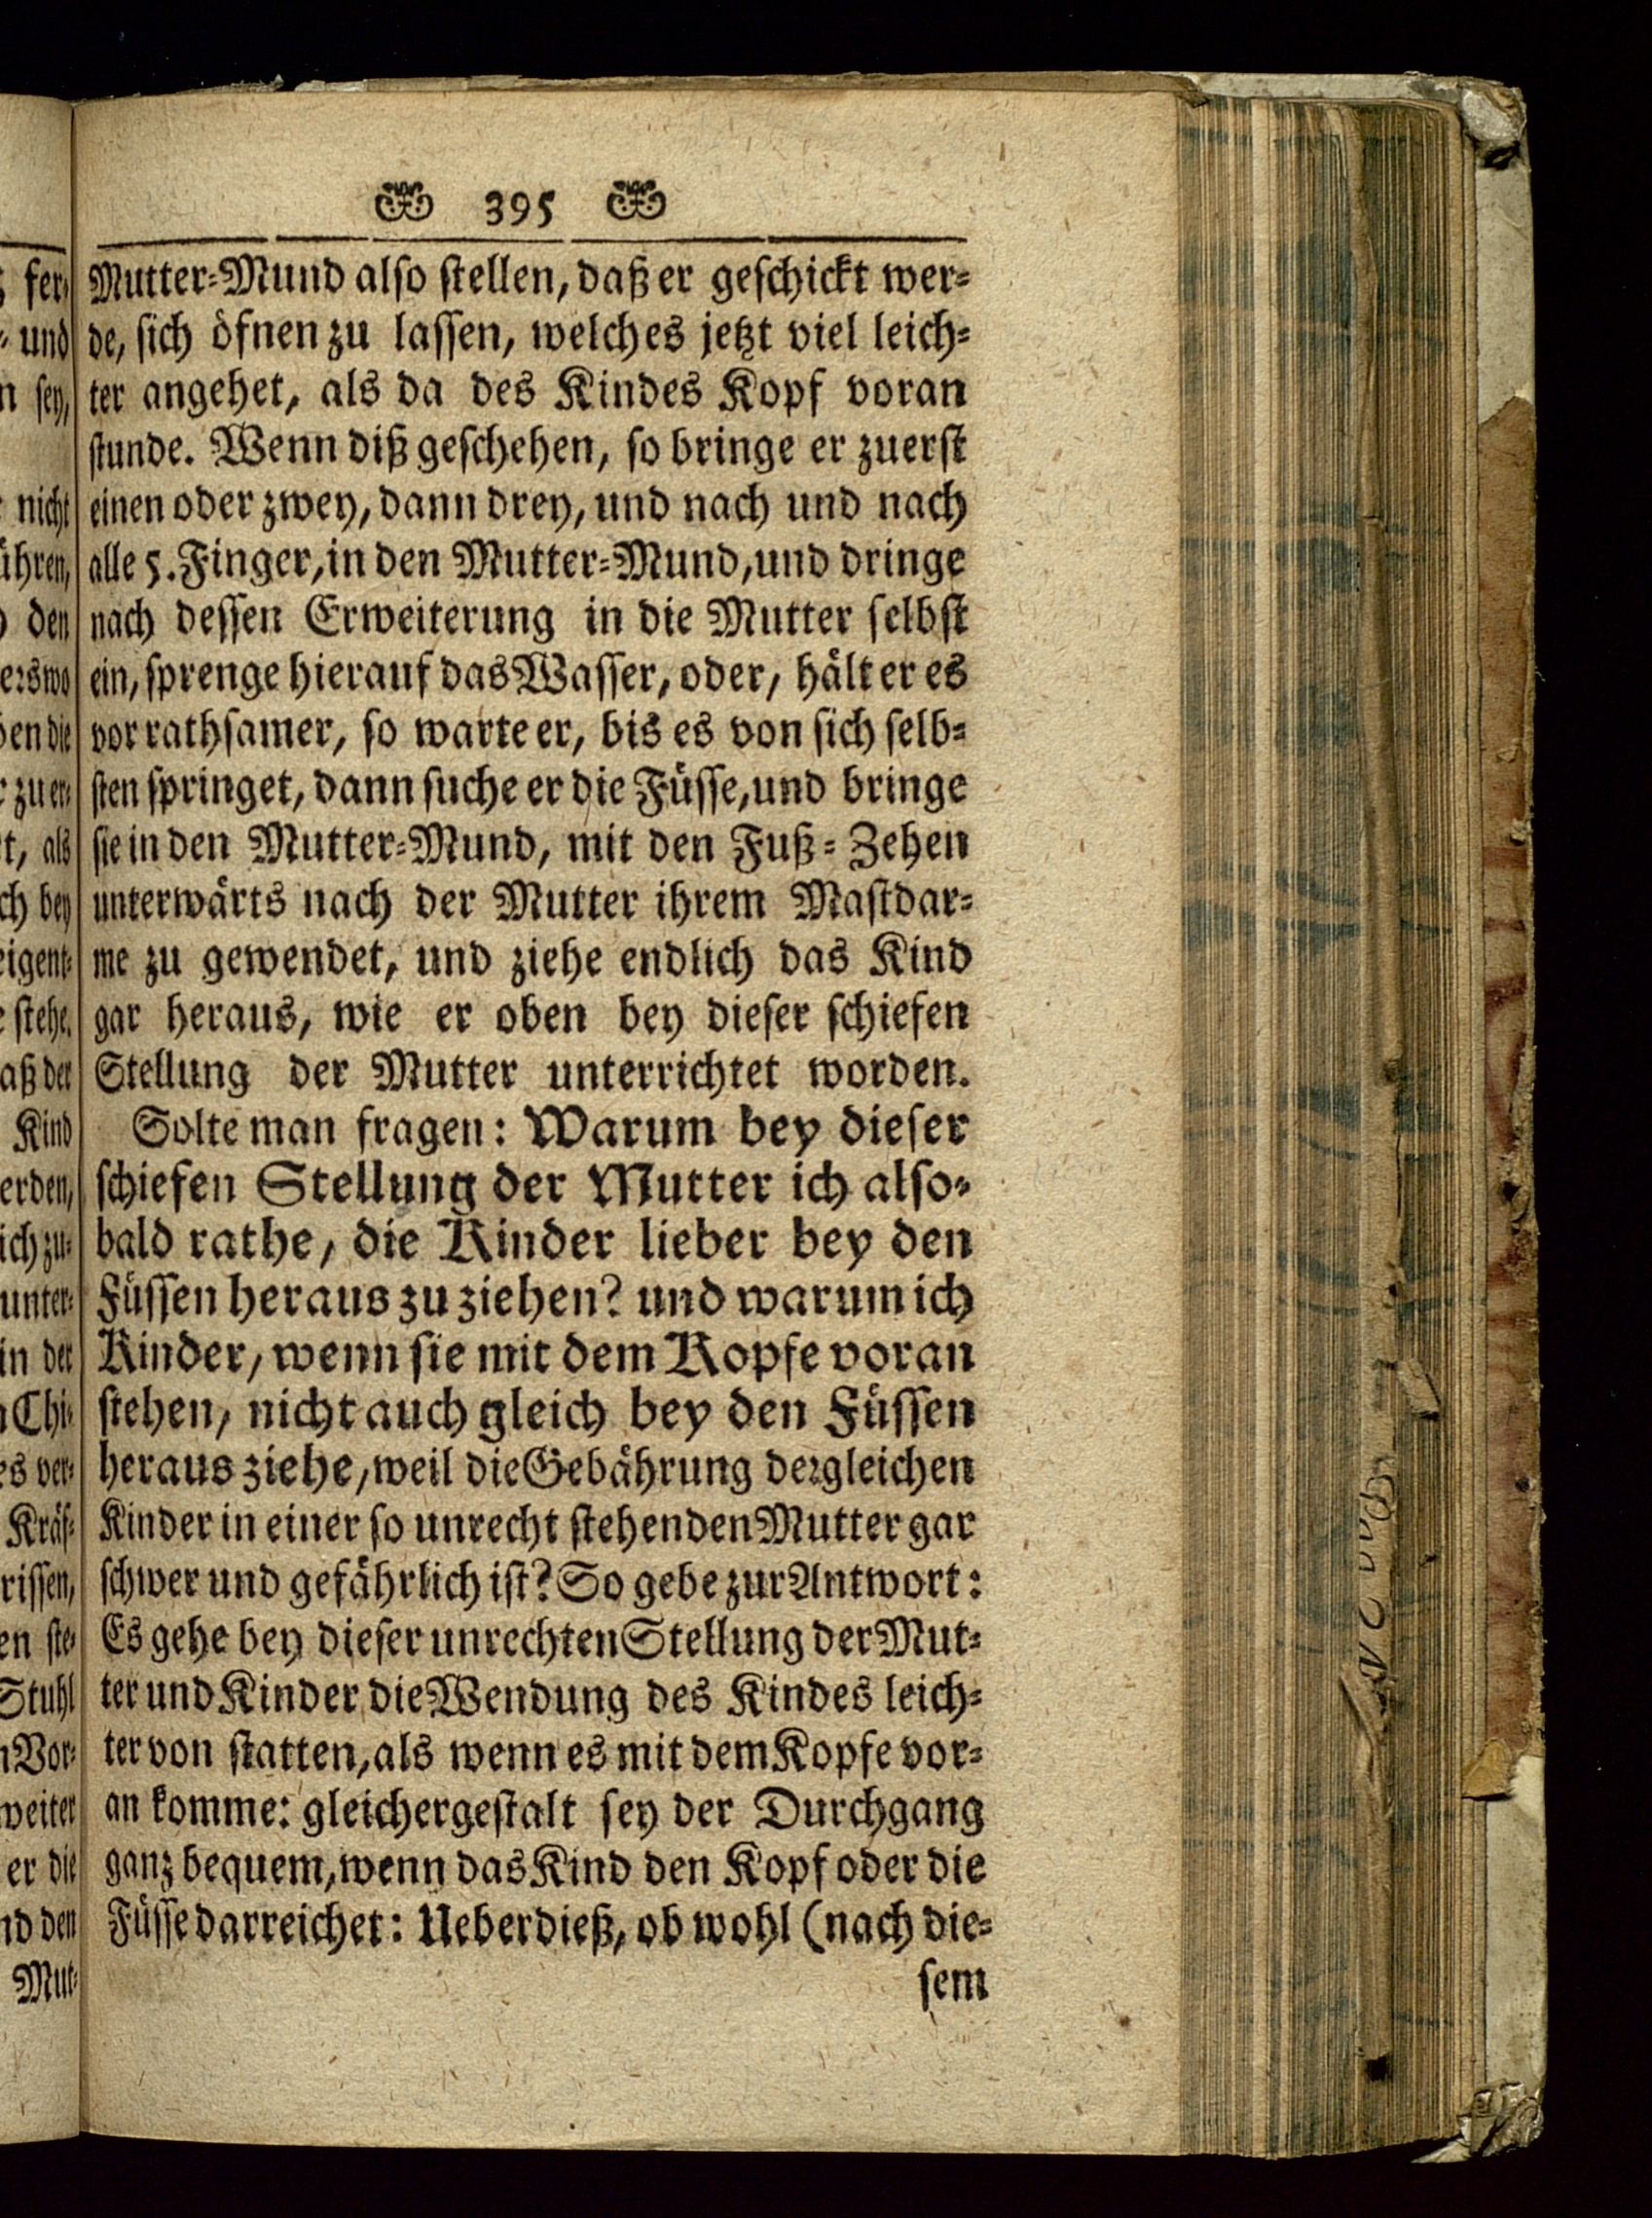 395
Mutter-Mund also stellen, daß er geschickt wer-
de, sich öfnen zu lassen, welches jetzt viel leich-
ter angehet, als da des Kindes Kopf voran
stunde. Wenn diß geschehen, so bringe er zuerst
einen oder zwey, dann drey, und nach und nach
alle 5. Finger, in den Mutter-Mund, und dringe
nach dessen Erweiterung in die Mutter selbst
ein, sprenge hierauf das Wasser, oder, hält er es
vor rathsamer, so warte er, bis es von sich selb-
sten springet, dann suche er die Füsse, und bringe
sie in den Mutter-Mund, mit den Fuß-Zehen
unterwärts nach der Mutter ihrem Mastdar-
me zu gewendet, und ziehe endlich das Kind
gar heraus, wie er oben bey dieser schiefen
Stellung der Mutter unterrichtet worden.
Solte man fragen: Warum bey dieser
schiefen Stellung der Mutter ich also-
bald rathe, die Kinder lieber bey den
Füssen heraus zu ziehen? und warum ich
Kinder, wenn sie mit dem Kopfe voran
stehen, nicht auch gleich bey den Füssen
heraus ziehe, weil die Gebährung dergleichen
Kinder in einer so unrecht stehenden Mutter gar
schwer und gefährlich ist? So gebe zur Antwort:
Es gehe bey dieser unrechten Stellung der Mut-
ter und Kinder die Wendung des Kindes leich-
ter von statten, als wenn es mit dem Kopfe vor-
an komme: gleichergestalt sey der Durchgang
ganz bequem, wenn das Kind den Kopf oder die
Füsse darreichet: Ueberdieß, ob wohl (nach die-
sem